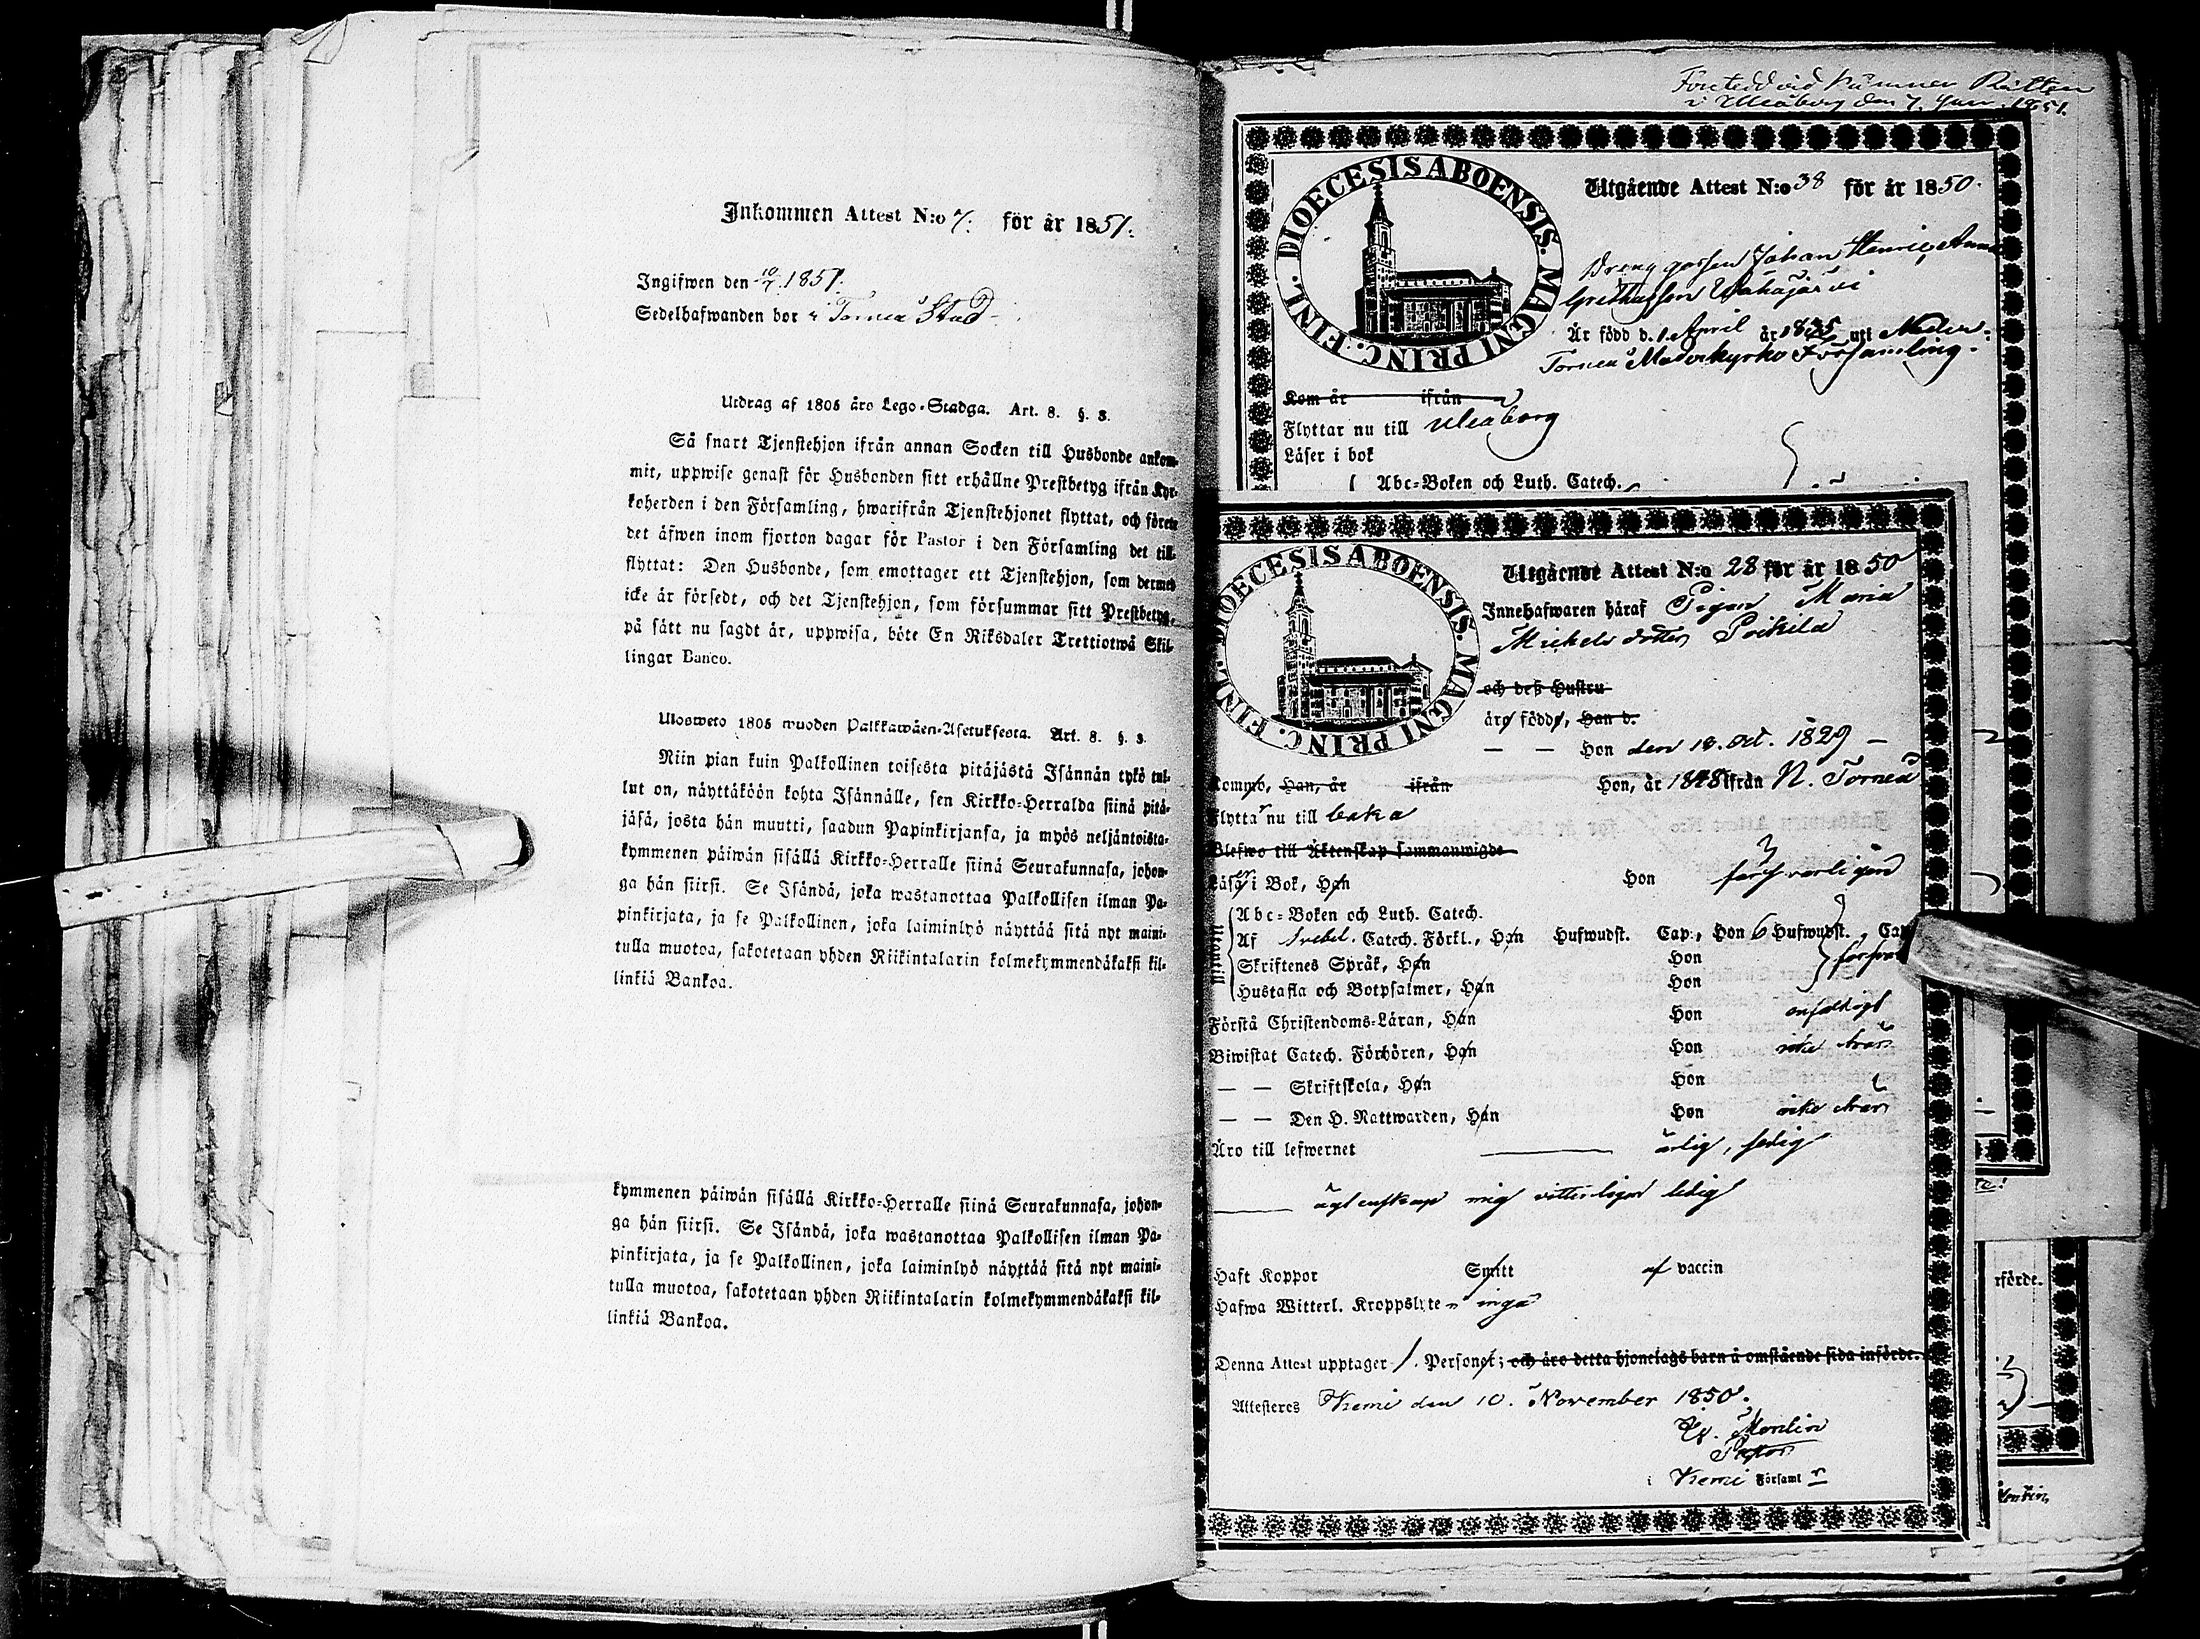 Inkommen Attest N:o 7. för år 1851.
Ingifwen den 10/7. 1851.
Sedelhafwanden bor i Torneå Stad
Utdrag af 1805 års Lego-Stadga. Art. 8. §. 3.
Så snart Tjenstehjon ifrån annan Socken till Husbonde ankom-
mit, uppwise genast för Husbonden sitt erhållne Prestbetyg ifrån Kyr-
koherden i den Församling, hwarifrån Tjenstehjonet flyttat, och förete
det äfwen inom fjorton dagar för Pastor i den Församling det till-
flyttat: Den Husbonde, som emottager ett Tjenstehjon, som dermed
icke är försedt, och det Tjenstehjon, som försummar sitt Prestbetyg,
på sätt nu sagdt är, uppwisa, böte En Riksdaler Trettiotwå Skil-
lingar Banco.
Ulosweto 1805 wuoden Palkkawäen-Asetuksesta. Art. 8. §. 3.
Niin pian kuin Palkollinen toisesta pitäjästä Isännän tykö tul-
lut on, näyttäköön kohta Isännälle, sen Kirkko-Herralda siinä pitä-
jäsä, josta hän muutti, saadun Papinkirjansa, ja myös neljäntoista-
kymmenen päiwän sisällä Kirkko-Herralle siinä Seurakunnasa, johon-
ga hän siirsi. Se Isändä, joka wastanottaa Palkollisen ilman Pa-
pinkirjata, ja se Palkollinen, joka laiminlyö näyttää sitä nyt maini-
tulla muotoa, sakotetaan yhden Riikintalarin kolmekymmendäkaksi kil-
linkiä Bankoa.
kymmenen päiwän sisällä Kirkko-Herralle siinä Seurakunnasa, johon-
ga hän siirsi. Se Isändä, joka wastanottaa Palkollisen ilman Pa-
pinkirjata, ja se Palkollinen, joka laiminlyö näyttää sitä nyt maini-
tulla muotoa, sakotetaan yhden Riikintalarin kolmekymmendäkaksi kil-
linkiä Bankoa.
Företedd vid Kämner Rätten
i Uleåborg den 7. 1851.
DIOECESIS ABOENSIS. MAGNI PRINC. FINL.
Utgående Attest N:o 38 för år 1850.
Drenggossen Johan Henric Anna
Grethasson Wähäjärvi
Är född d. 1. April år 1835 uti Neder
Torneå Moderkyrko Församling.
Kom år ifrån
Flyttar nu till Uleåborg
Läser i bok
Abc-Boken och Luth. Catech.
DIOECESIS ABOENSIS. MAGNI PRINC. FINL.
Utgående Attest N:o 28 för år 1850
Innehafwaren häraf Pigan Maria
Michelsdotter Poikela
och deß Hustru
äro födde, Han d.
— — Hon den 18. Oct. 1829 —
Kommo, Han, år ifrån Hon, år 1848 ifrån N. Torneå
Flytta r nu till
Blefwo till Äktenskap sammanwigde
Läsa i Bok, Han Hon försvarligen
Utantill
Abc-Boken och Luth. Catech.
Af Svebel. Catech. Förkl., Han Hufwudst. Cap., Hon 6 Hufwudst., Cap
Skriftenes Språk, Han Hon
Hustafla och Botpsalmer, Han Hon
Förstå Christendoms-Läran, Han Hon enfaldigt
Biwistat Catech. Förhören, Han Hon
— — Skriftskola, Han Hon
— — Den H. Nattwarden, Han Hon
Äro till lefwernet ärlig, sedig
ägtenskap mig vitterligen ledig
Haft Koppor Smitt af vaccin
Hafwa Witterl. Kroppslyten inga
Denna Attest upptager 1. Person; och äro detta hjonelags barn å omstående sida införde.
Attesteres Kemi den 10. November 1850.
Pastor
i Kemi Församl
rförde.